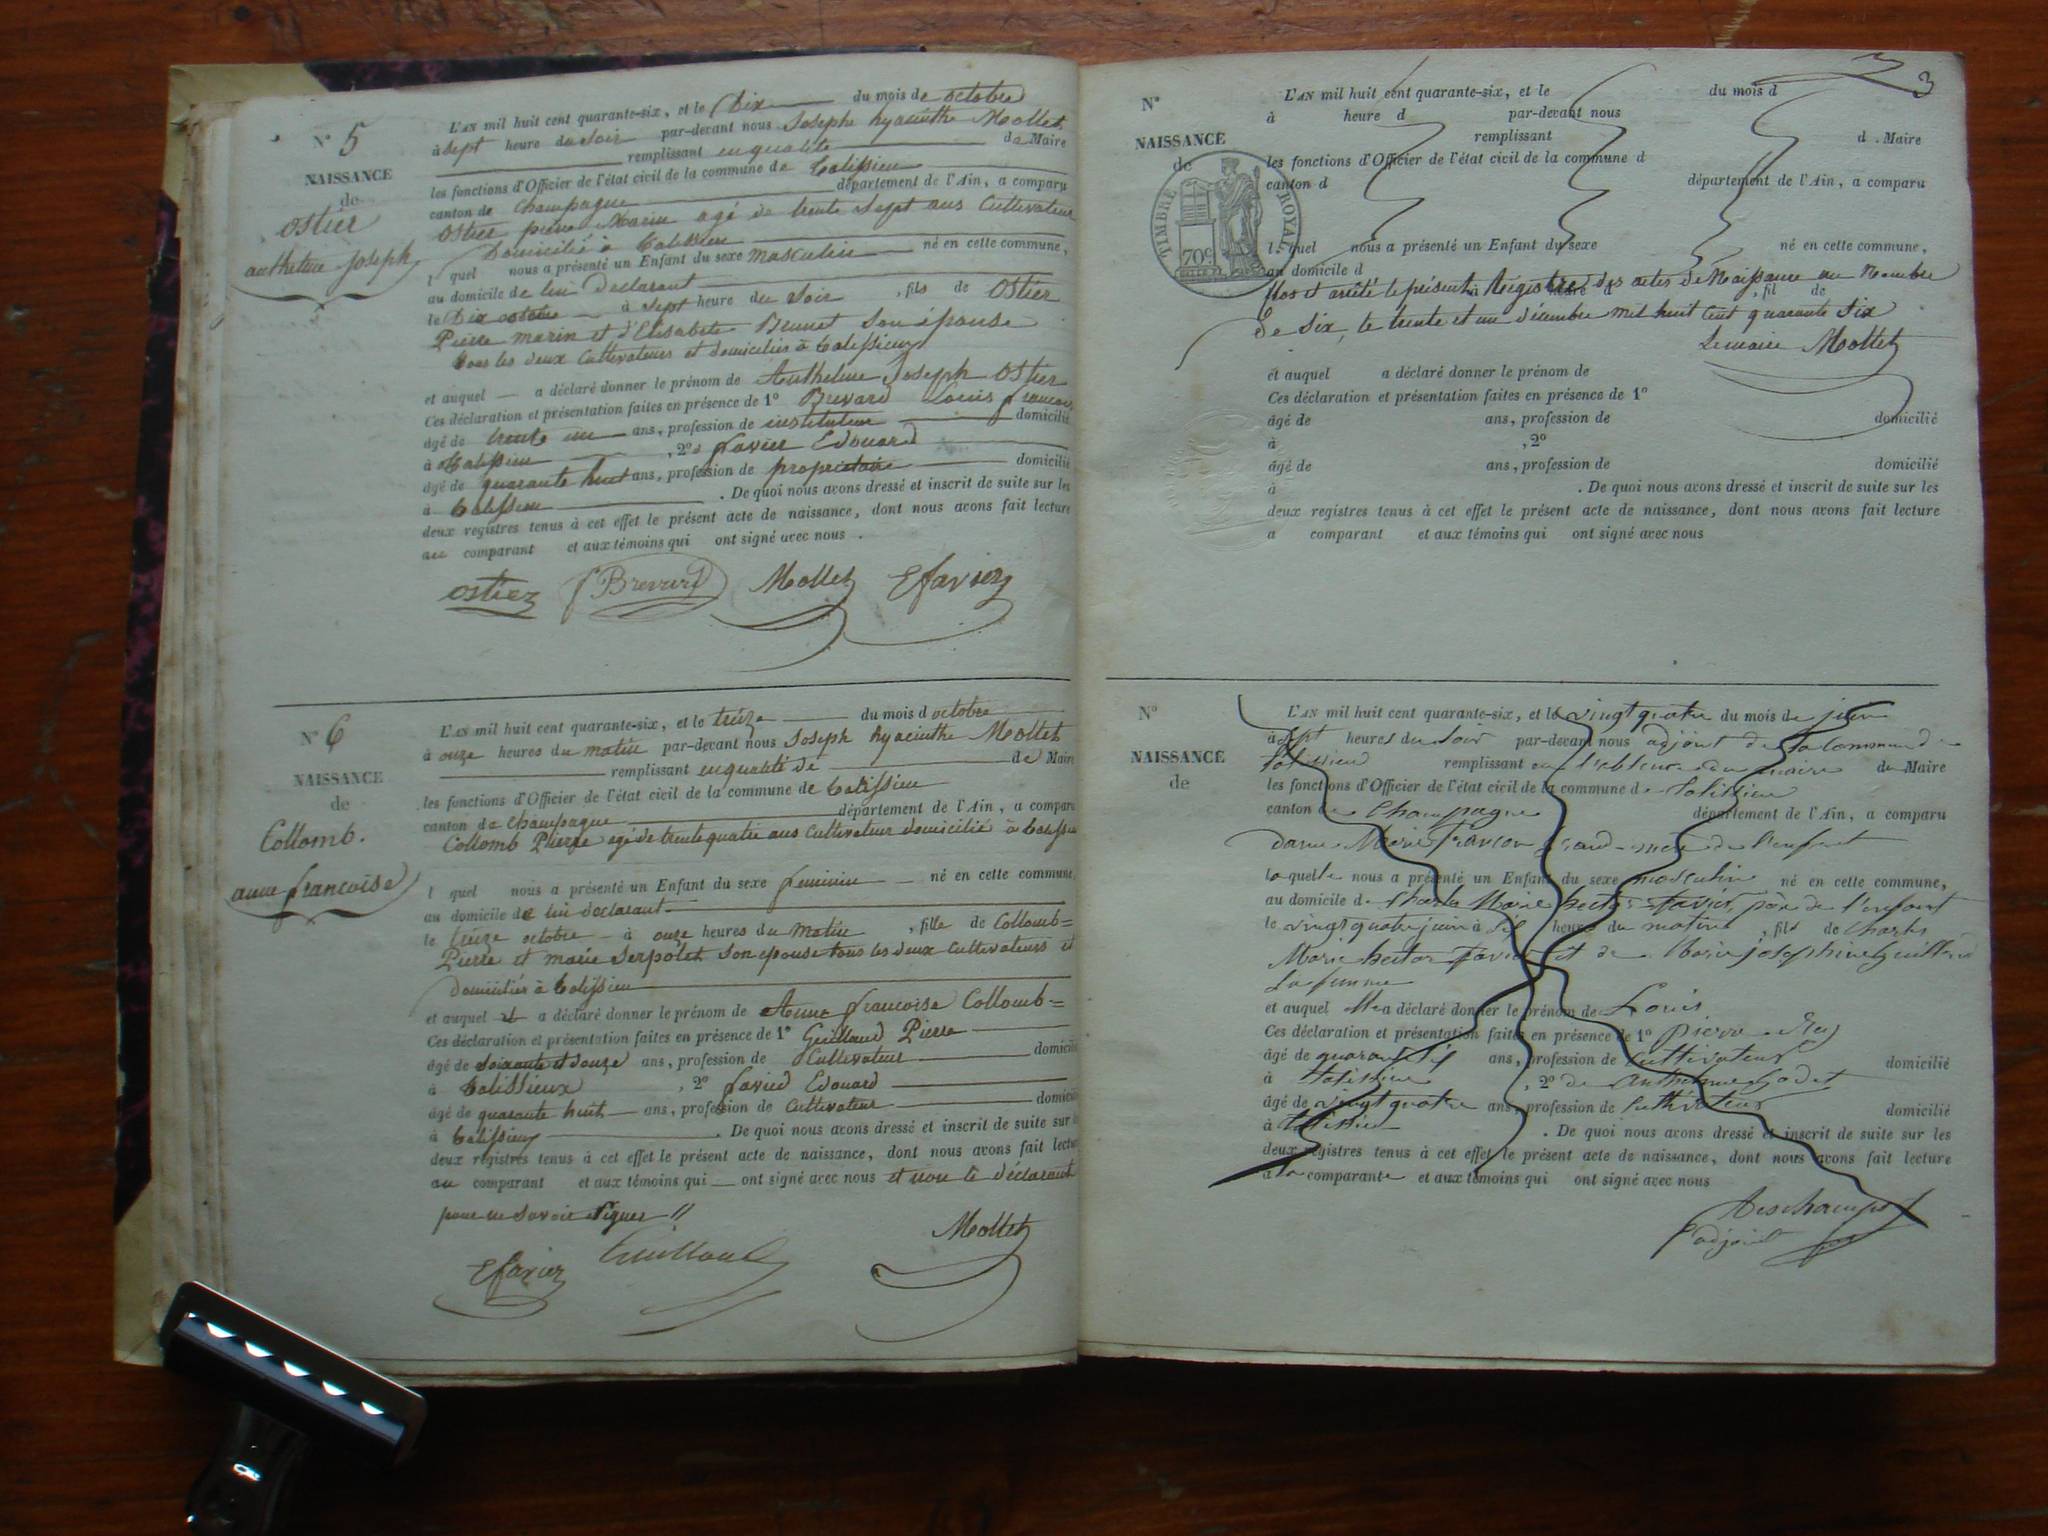 N° 5
NAISSANCE
de
Ostier
anthelme joseph
L'AN mil huit cent quarante-six, et le Dix du mois de octobre
à sept heure du soir par-devant nous Joseph hyacinthe Mollet
remplissant en qualité de Maire
les fonctions d'Officier de l'état civil de la commune de Talissieu
canton de Champagne département de l'Ain, a comparu
Ostier pierre Marin agé de trente sept ans Cultivateur
Domicilié à Talissieu
l quel nous a présenté un Enfant du sexe masculin né en cette commune,
au domicile de lui Declarant
le Dix octobre à sept heure du soir, fils de Ostier
Pierre marin et d'Elisabete Brunet son épouse
tous les deux Cultivateurs et domiciliés à Talissieux
et auquel a déclaré donner le prénom de Anthelme Joseph Ostier
Ces déclaration et présentation faites en présence de 1° Brevard Louis françois
âgé de trente un ans, profession de instituteur domicilié
à Talissieu, 2° favier Edouard
âgé de quarante huit ans, profession de propriétaire domicilié
à Talissieu. De quoi nous avons dressé et inscrit de suite sur les
deux registres tenus à cet effet le présent acte de naissance, dont nous avons fait lecture
au comparant et aux témoins qui ont signé avec nous.
ostier Brevard Mollet Efavier
N° 6
NAISSANCE
de
Collomb.
anne francoise
L'AN mil huit cent quarante-six, et le treize du mois d octobre
à onze heures du matin par-devant nous Joseph hyacinthe Mollet
remplissant en qualité de de Maire
les fonctions d'Officier de l'état civil de la commune de Talissieu
canton de Champagne département de l'Ain, a comparu
Collomb Pierre agé de trente quatre ans Cultivateur domicilié à Talissieu
l quel nous a présenté un Enfant du sexe feminin né en cette commune,
au domicile de lui declarant
le treize octobre à onze heures du matin, fille de Collomb=
Pierre et marie Serpolet son epouse tous les deux Cultivateurs et
domiciliés à Talissieu
et auquel il a déclaré donner le prénom de Anne francoise Collomb=
Ces déclaration et présentation faites en présence de 1° Guilland Pierre
âgé de soixante et douze ans, profession de Cultivateur domicilié
à Talissieux, 2° favier Edouard
âgé de quarante huit ans, profession de Cultivateur domicilié
à Talissieux. De quoi nous avons dressé et inscrit de suite sur les
deux registres tenus à cet effet le présent acte de naissance, dont nous avons fait lecture
au comparant et aux témoins qui ont signé avec nous et non le déclarant
pour ne savoir signer //
Efavier Guilland Mollet
3
N°
NAISSANCE
de
TIMBRE ROYAL
70c
L'AN mil huit cent quarante-six, et le du mois d
à heure d par-devant nous
remplissant d . Maire
les fonctions d'Officier de l'état civil de la commune d
canton d département de l'Ain, a comparu
l quel nous a présenté un Enfant du sexe né en cette commune,
au domicile d
Clos et arrêté le présent Régistre des actes de Naissance au Nombre
de six, le trente et un décembre mil huit cent quarante six
Le maire Mollet
et auquel a déclaré donner le prénom de
Ces déclaration et présentation faites en présence de 1°
âgé de ans, profession de domicilié
à , 2°
âgé de ans, profession de domicilié
à . De quoi nous avons dressé et inscrit de suite sur les
deux registres tenus à cet effet le présent acte de naissance, dont nous avons fait lecture
a comparant et aux témoins qui ont signé avec nous
N°
NAISSANCE
de
L'AN mil huit cent quarante-six, et le vingt quatre du mois de juin
à sept heures du soir par-devant nous adjoint de la commune de
Talissieu remplissant en l'absence du maire du Maire
les fonctions d'Officier de l'état civil de la commune de Talissieu
canton de Champagne département de l'Ain, a comparu
dame Marie francon grand-mère de l'enfant
laquelle nous a présenté un Enfant du sexe masculin né en cette commune,
au domicile de Charle Marie hector favier père de l'enfant
le vingt quatre juin à six heures du matin, fils de Charles
Marie hector favier et de Marie josephine Guilland
sa femme
et auquel elle a déclaré donner le prénom de Louis
Ces déclaration et présentation faites en présence de 1° pierre Rey
âgé de quarante six ans, profession de Cultivateur domicilié
à Talissieu, 2° de anthelme Godet
âgé de vingt quatre ans, profession de Cultivateur domicilié
à Talissieu. De quoi nous avons dressé et inscrit de suite sur les
deux registres tenus à cet effet le présent acte de naissance, dont nous avons fait lecture
à la comparante et aux témoins qui ont signé avec nous
Deschamps
l'adjoint